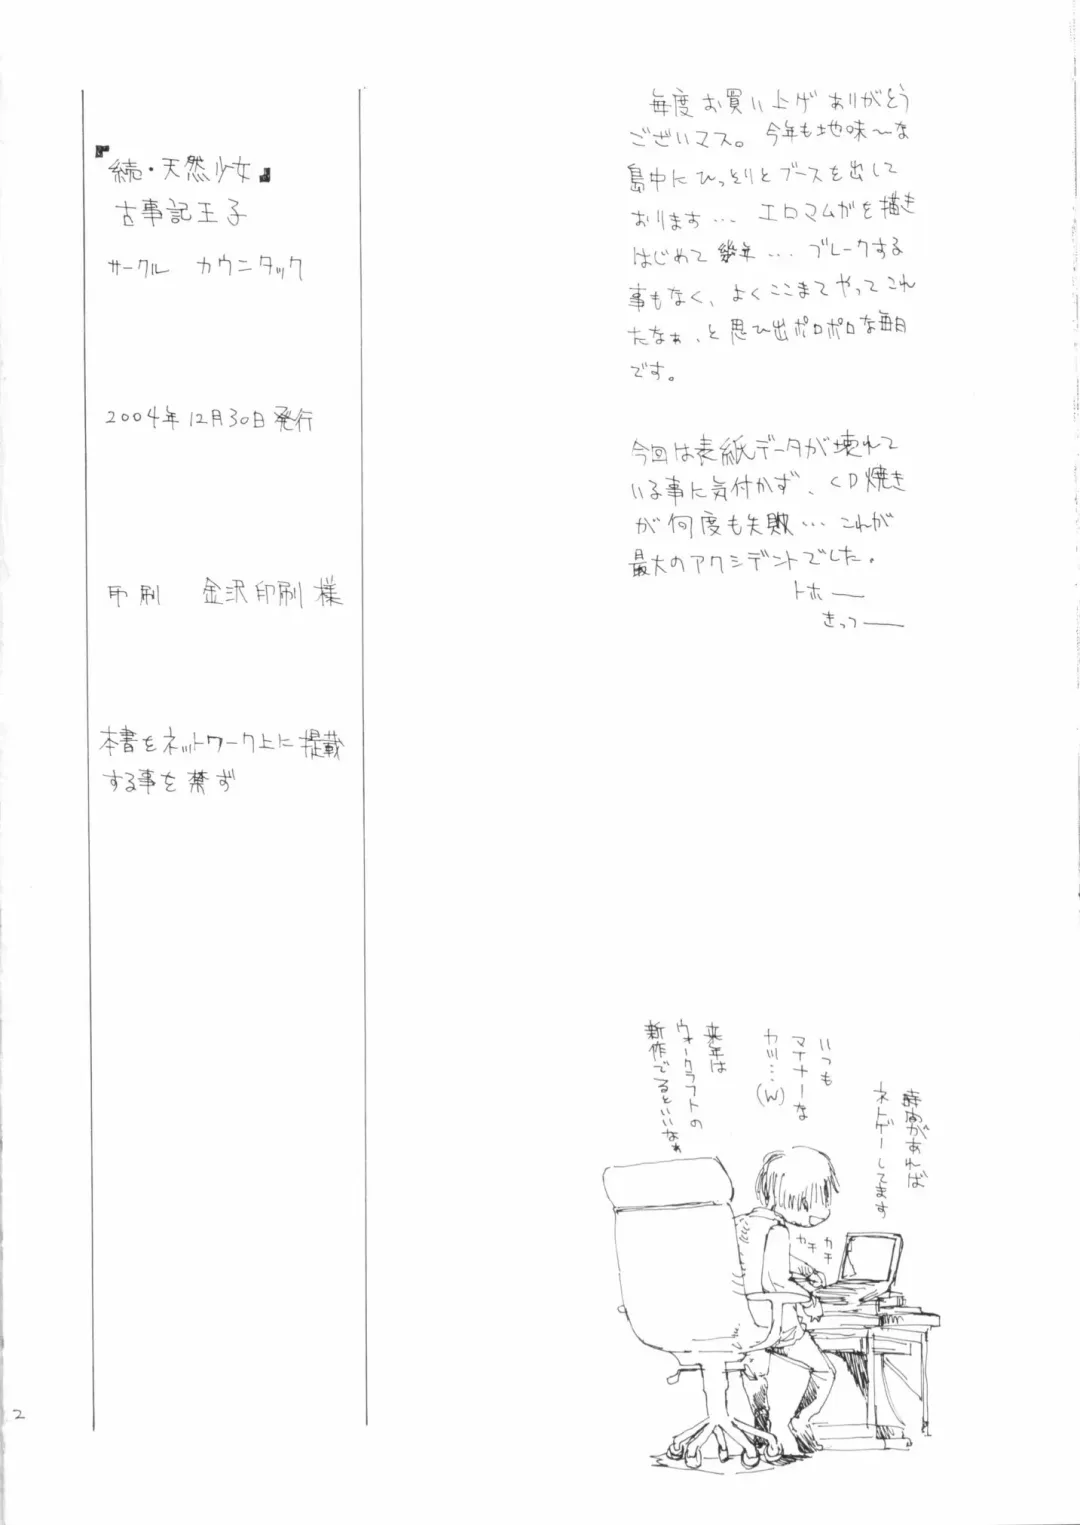 『続・天然少女』
古事記王子
サークル カウンタック
2004年12月30日発行
印刷 金沢印刷様
本書をネットワーク上に掲載
する事を禁ず
毎度お買い上げありがとう
ございマス。今年も地味〜な
島中にひっそりとブースを出して
おります… エロマムガを描き
はじめて幾年… ブレークする
事もなく、よくここまでやってこれ
たなぁ、と思ひ出ポロポロな毎日
です。
今回は表紙データが壊れて
いる事に気付かず、CD焼き
が何度も失敗… これが
最大のアクシデントでした。
トホー
きっつー
時間があれば
ネトゲーしてます
いつも
マイナーな
カツ…(W)
来年は
ウォークラフトの
新作でるといいなぁ
カチ
カチ
2